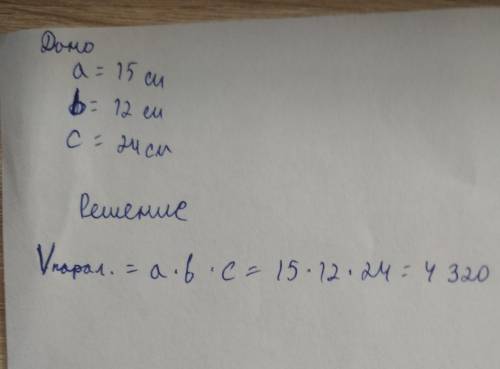 Дано
a = 15 см
b = 12 см
c = 24 см
Решение
Vпарал. = a · b · c = 15 · 12 · 24 = 4 320